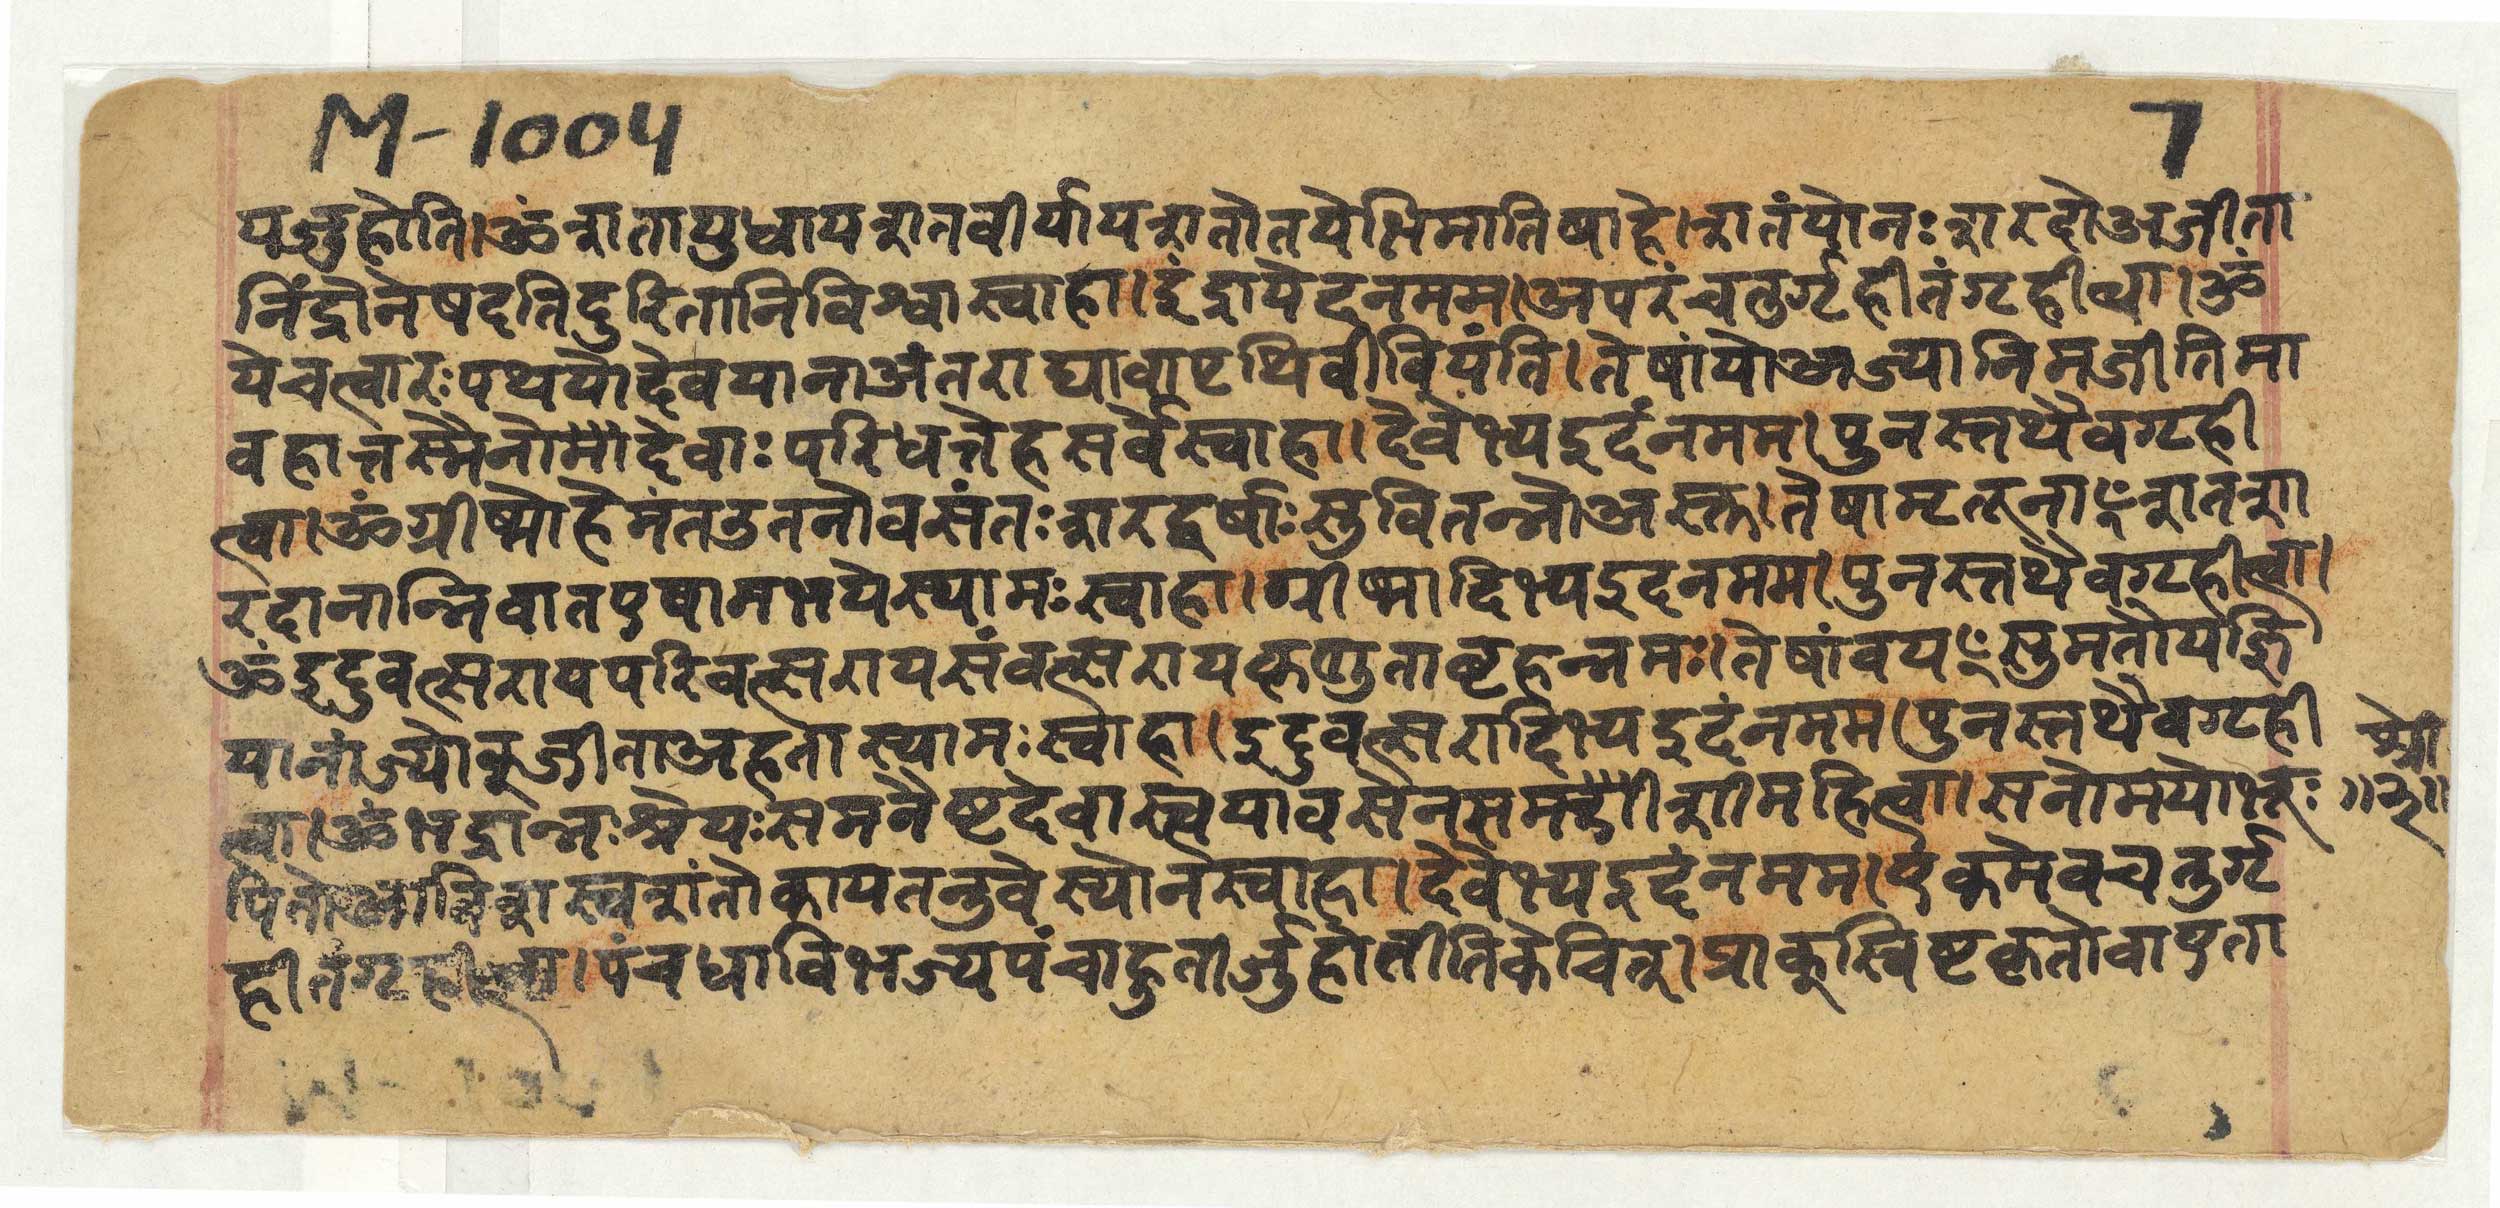 M-1004
7
यजुहोति।ॐशतायुधायशतवीर्यायशतोतयेभिमातिषाहे।शतंयोनःशरदोअजीता
निंद्रोनेषदतिदुरितानिविश्वास्वाहा।इंद्रायेदनमम।अपरंचतुर्गृहीतंगृहीत्वा।ॐ
येचत्वारःपथयोदेवयानाअंतराद्यावापृथिवीवियंति।तेषांयोअज्यानिमजीतिमा
वहात्तस्मैनोमादेवाःपरिधत्तेहसर्वेस्वाहा।देवेभ्यइदंनमम।पुनस्तथैवगृही
त्वा।ॐग्रीष्मोहेमंतउतनोवसंतःशरद्वर्षाःसुवितन्नोअस्तु।तेषामृतूनाꣳशतशा
रदानान्निवातएषामभयेस्यामःस्वाहा।ग्रीष्मादिभ्यइदनमम।पुनस्तथैवगृहीत्वा।
ॐइदुवत्सरायपरिवत्सरायसंवत्सरायकृणुताबृहन्नमः।तेषांवयꣳसुमतौयज्ञि
यानांज्योक्जीताअहतास्यामःस्वाहा।इदुवत्सरादिभ्यइदंनमम।पुनस्तथैवगृही
त्वा।ॐभद्रान्नःश्रेयःसमनैष्टदेवास्त्वयावसेनसमशीमहित्वा।सनोमयोभूः
पितोआविशस्वशंतोकायतनुवेस्योनस्वाहा।देवेभ्यइदंनमम।एकमेवचतुर्गृ
हीतंगृहीत्वा।पंचधाविभज्यपंचाहुतीर्जुहोतीतिकेचित्।प्राक्स्विष्टकृतोवाएता
॥३॥